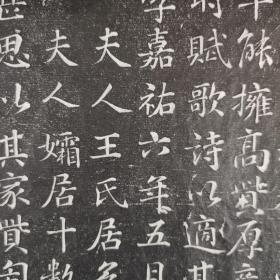 能擁高貲厚
賦歌詩以適其
嘉祐六年五月
夫人王氏居
夫人孀居十數
思以其家貲